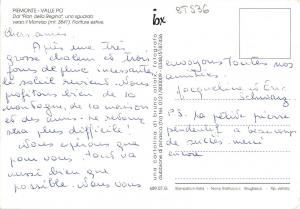 PIEMONTE - VALLE PO
Dal "Pian della Regina", uno sguardo
verso il Monviso (mt. 3841). Fioriture estive.
ibx
8T536
Chers amis,
Après une très
grosse chaleur et trois
jours de pluie incessante
le soleil revient. Nous
profitons bien de la
montagne, de la maison
et des amis. Le retour
sera plus difficile!
Nous espérons que
pour vous tout va
aussi bien que
possible. Nous vous
envoyons toutes nos
amitiés.
Jacqueline et Eric
Schwartz
P.S. La petite pierre
pendentif a beaucoup
de succès. merci
encore